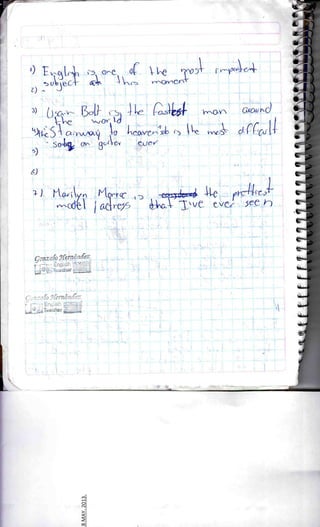 1) English is one of the most important
subject at this moment
2) -
3) Usain Bolt is the fastest man around
the world
4) "Stairway to heaven" is the most difficult
song on guitar ever
5)
6)
7) Marilyn Monroe is the prettiest
model / actress that I've ever seen
Gonzalo Hernández
English
Teacher
Gonzalo Hernández
English
Teacher
8 MAY 2013.